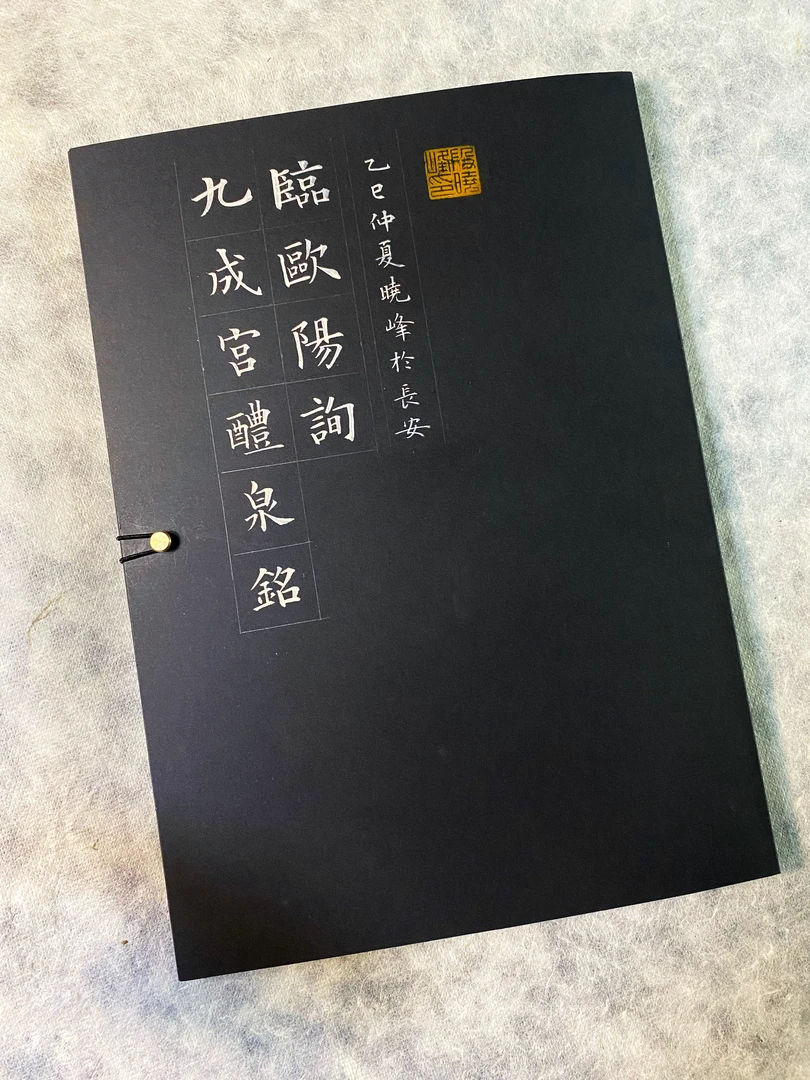 乙巳仲夏曉峰於長安
臨歐陽詢
九成宮醴泉銘